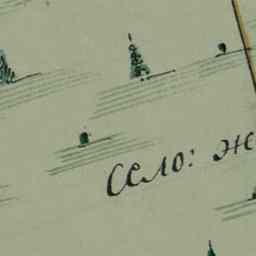 Село: ж